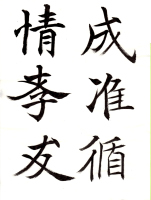 成准循
情孝友